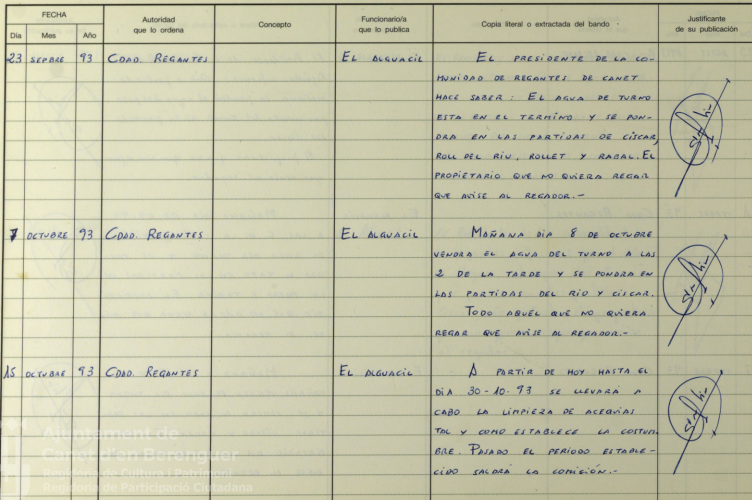 FECHA
Día Mes Año
Autoridad
que lo ordena
Concepto
Funcionario/a
que lo publica
Copia literal o extractada del bando
Justificante
de su publicación
23 SEPBRE 93 CDAD. REGANTES EL ALGUACIL EL PRESIDENTE DE LA CO-
MUNIDAD DE REGANTES DE CANET
HACE SABER: EL AGUA DE TURNO
ESTA EN EL TERMINO Y SE PON-
DRA EN LAS PARTIDAS DE CISCAR,
ROLL DEL RIU, ROLLET Y RABAL. EL
PROPIETARIO QUE NO QUIERA REGAR
QUE AVISE AL REGADOR.-
7 OCTUBRE 93 CDAD. REGANTES EL ALGUACIL MAÑANA DIA 8 DE OCTUBRE
VENDRA EL AGUA DEL TURNO A LAS
2 DE LA TARDE Y SE PONDRA EN
LAS PARTIDAS DEL RIO Y CISCAR.
TODO AQUEL QUE NO QUIERA
REGAR QUE AVISE AL REGADOR.-
15 OCTUBRE 93 CDAD. REGANTES EL ALGUACIL A PARTIR DE HOY HASTA EL
DIA 30-10-93 SE LLEVARÁ A
CABO LA LIMPIEZA DE ACEQUIAS
TAL Y COMO ESTABLECE LA COSTUM-
BRE. PASADO EL PERIODO ESTABLE-
CIDO SALDRÁ LA COMICIÓN.-
Ajuntament de
Canet d'en Berenguer
Regidoria de Cultura i Patrimoni
Regidoria de Participació Ciutadana